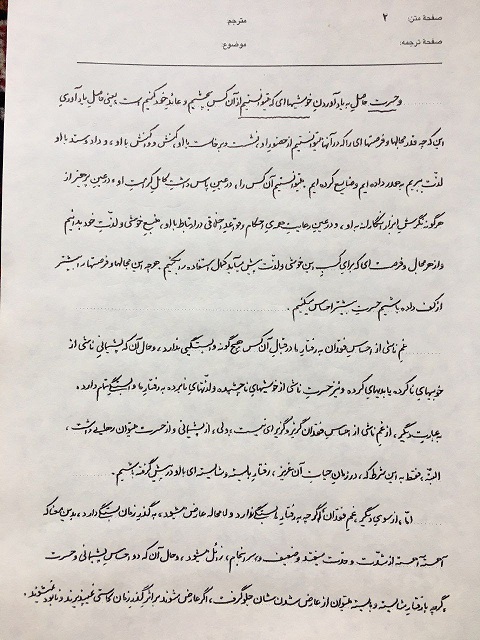 صفحهٔ متن: ۲ مترجم:
صفحهٔ ترجمه: موضوع:
و حسرت حاصلِ به یاد آوردنِ خوشیهایی که میتوانستیم از آن کس بچشیم و عائدِ خود کنیم است، یعنی حاصلِ یادآوریِ
این که چه قدر مجالها و فرصتهایی را که در آنها میتوانستیم از حضورِ او، نشست و برخاست با او، کنش و واکنش با او، و داد و ستد با او
لذّت ببریم به هدر داده‌ایم و ضایع کرده‌ایم. میتوانستیم آن کس را، در عینِ پاس داشتِ کاملِ کرامتِ او، در عینِ پرهیز از
هرگونه نگرشِ ابزارانگارانه به او، و در عینِ رعایتِ همهٔ احکام و قواعدِ اخلاقی در ارتباط با او، منبعِ خوشی و لذّتِ خود بدانیم
و از هر مجال و فرصتی که برای کسبِ این خوشی و لذّت پیش میآید کمالِ استفاده را بکنیم. هر چه این مجالها و فرصتها را بیشتر
از کف داده باشیم حسرتِ بیشتر احساس میکنیم.
غمِ ناشی از احساسِ فقدان به رفتارِ ما در قبالِ آن کس هیچ گونه وابستگیی ندارد، و حال آن که پشیمانیِ ناشی از
خوبیهای ناکرده یا بدیهای کرده و نیز حسرتِ ناشی از خوشیهای ناچشیده و لذّتهای نابرده به رفتارِ ما وابستگیِ تام دارد.
به عبارتِ دیگر، از غمِ ناشی از احساسِ فقدان گریز و گزیری نیست، ولی، از پشیمانی و از حسرت میتوان رهایی داشت،
البتّه، فقط به این شرط که، در زمانِ حیاتِ آن عزیز، رفتارِ بایسته و شایسته‌ای با او در پیش گرفته باشیم.
امّا، از سوی دیگر، غمِ فقدان اگرچه به رفتارِ ما بستگی ندارد و لامحاله عارض میشود، به گذرِ زمان بستگی دارد، بدین معنا که
آهسته آهسته از شدّت و حدّت میفتد و ضعیف و، سرانجام، زائل میشود، و حال آن که دو احساسِ پشیمانی و حسرت
، گرچه با رفتارِ شایسته و بایسته میتوان از عارض شدنِ‌شان جلو گرفت، اگر عارض شوند بر اثرِ گذرِ زمان کاستی نمیپذیرند و نابود نمیشوند.